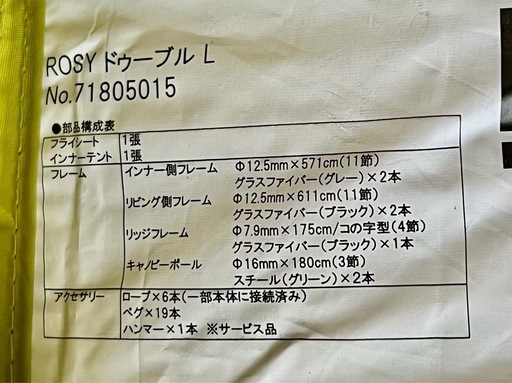 ROSY ドゥーブル L
No.71805015
●部品構成表
フライシート 1張
インナーテント 1張
フレーム インナー側フレーム Φ12.5mm×571cm(11節)
グラスファイバー(グレー)×2本
リビング側フレーム Φ12.5mm×611cm(11節)
グラスファイバー(ブラック)×2本
リッジフレーム Φ7.9mm×175cm/コの字型(4節)
グラスファイバー(ブラック)×1本
キャノピーポール Φ16mm×180cm(3節)
スチール(グリーン)×2本
アクセサリー ロープ×6本(一部本体に接続済み)
ペグ×19本
ハンマー×1本 ※サービス品